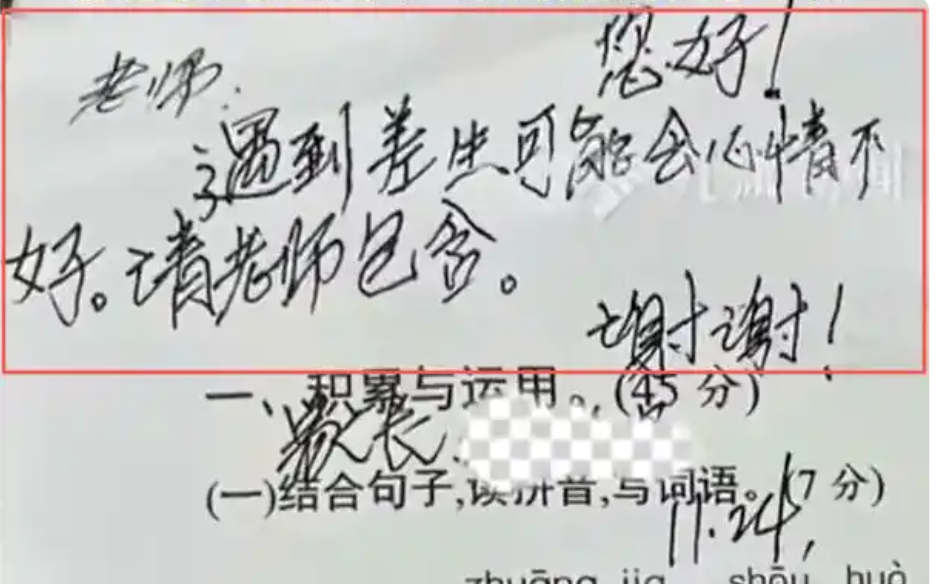 老师: 您好!
遇到差生可能会心情不
好。请老师包含。
谢谢!
一、积累与运用。(45 分)
家长
(一)结合句子,读拼音,写词语。(7 分)
11.24,
zhuāng jia shōu huò